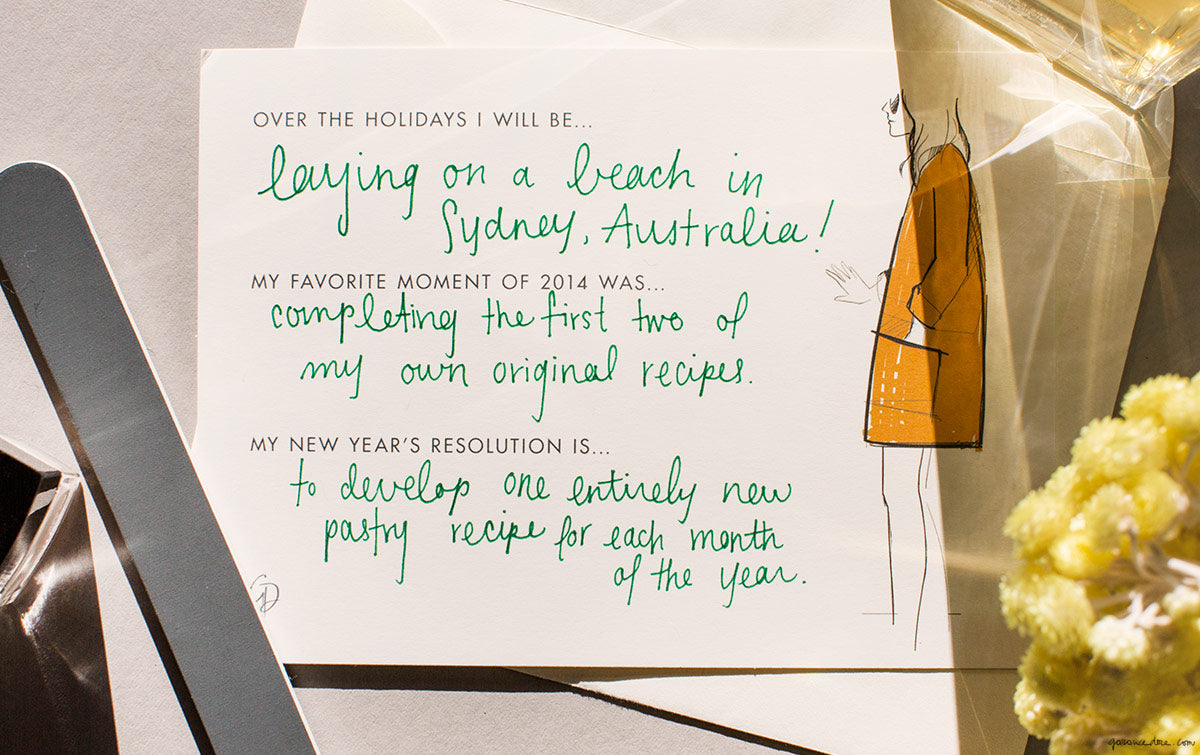 OVER THE HOLIDAYS I WILL BE...
laying on a beach in
Sydney, Australia!
MY FAVORITE MOMENT OF 2014 WAS...
completing the first two of
my own original recipes.
MY NEW YEAR'S RESOLUTION IS...
to develop one entirely new
pastry recipe for each month
of the year.
GD
garancedore.com